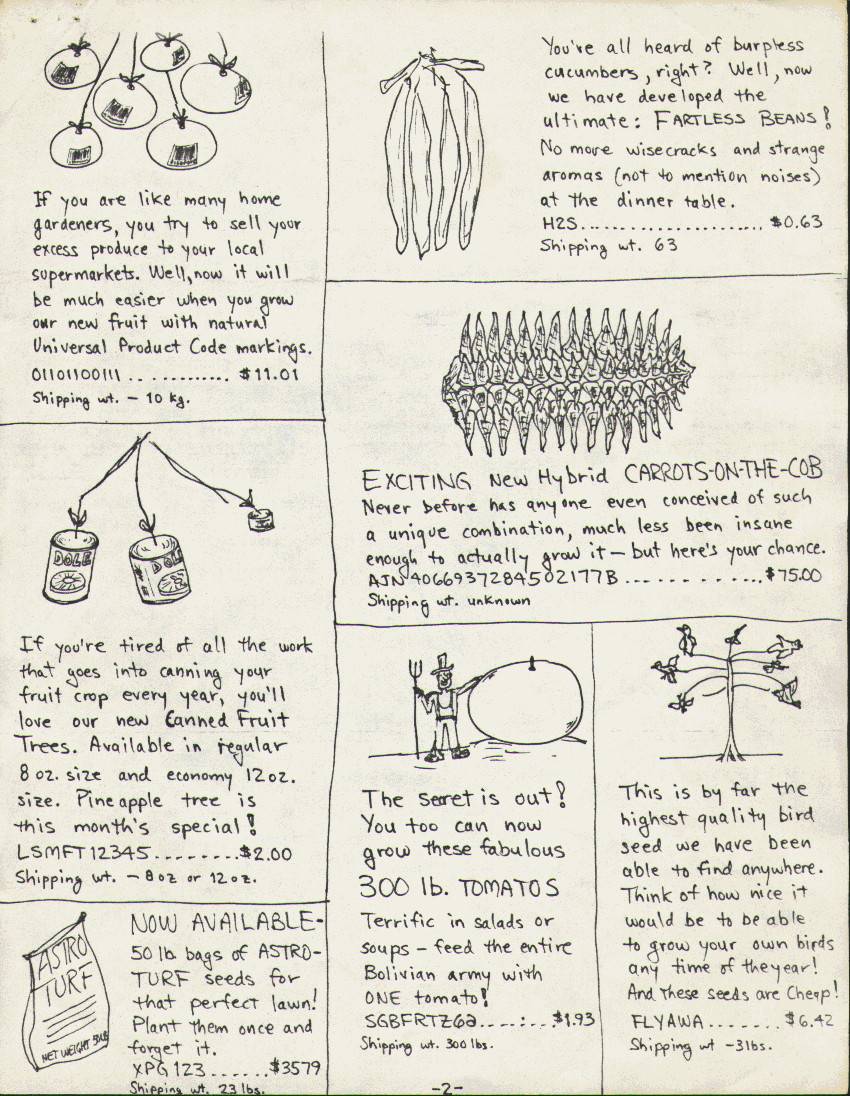 If you are like many home
gardeners, you try to sell your
excess produce to your local
supermarkets. Well, now it will
be much easier when you grow
our new fruit with natural
Universal Product Code markings.
01101100111 .. ........... $11.01
Shipping wt. – 10 kg.
DOLE
DOLE
If you're tired of all the work
that goes into canning your
fruit crop every year, you'll
love our new Canned Fruit
Trees. Available in regular
8 oz. size and economy 12 oz.
size. Pineapple tree is
this month's special!
LSMFT 12345........$2.00
Shipping wt. – 8 oz or 12 oz.
ASTRO
TURF
NET WEIGHT 50LB
NOW AVAILABLE-
50 lb. bags of ASTRO-
TURF seeds for
that perfect lawn!
Plant them once and
forget it.
XPG 123......$3579
Shipping wt. 23 lbs.
You've all heard of burpless
cucumbers, right? Well, now
we have developed the
ultimate: FARTLESS BEANS!
No more wisecracks and strange
aromas (not to mention noises)
at the dinner table.
H2S....................... $0.63
Shipping wt. 63
EXCITING New Hybrid CARROTS-ON-THE-COB
Never before has anyone even conceived of such
a unique combination, much less been insane
enough to actually grow it – but here's your chance.
AJN4066937284502177B ..............$75.00
Shipping wt. unknown
The secret is out!
You too can now
grow these fabulous
300 lb. TOMATOS
Terrific in salads or
soups – feed the entire
Bolivian army with
ONE tomato!
SGBFRTZ62....:...$1.93
Shipping wt. 300 lbs.
This is by far the
highest quality bird
seed we have been
able to find anywhere.
Think of how nice it
would be to be able
to grow your own birds
any time of the year!
And these seeds are Cheap!
FLYAWA........$6.42
Shipping wt –3lbs.
–2–